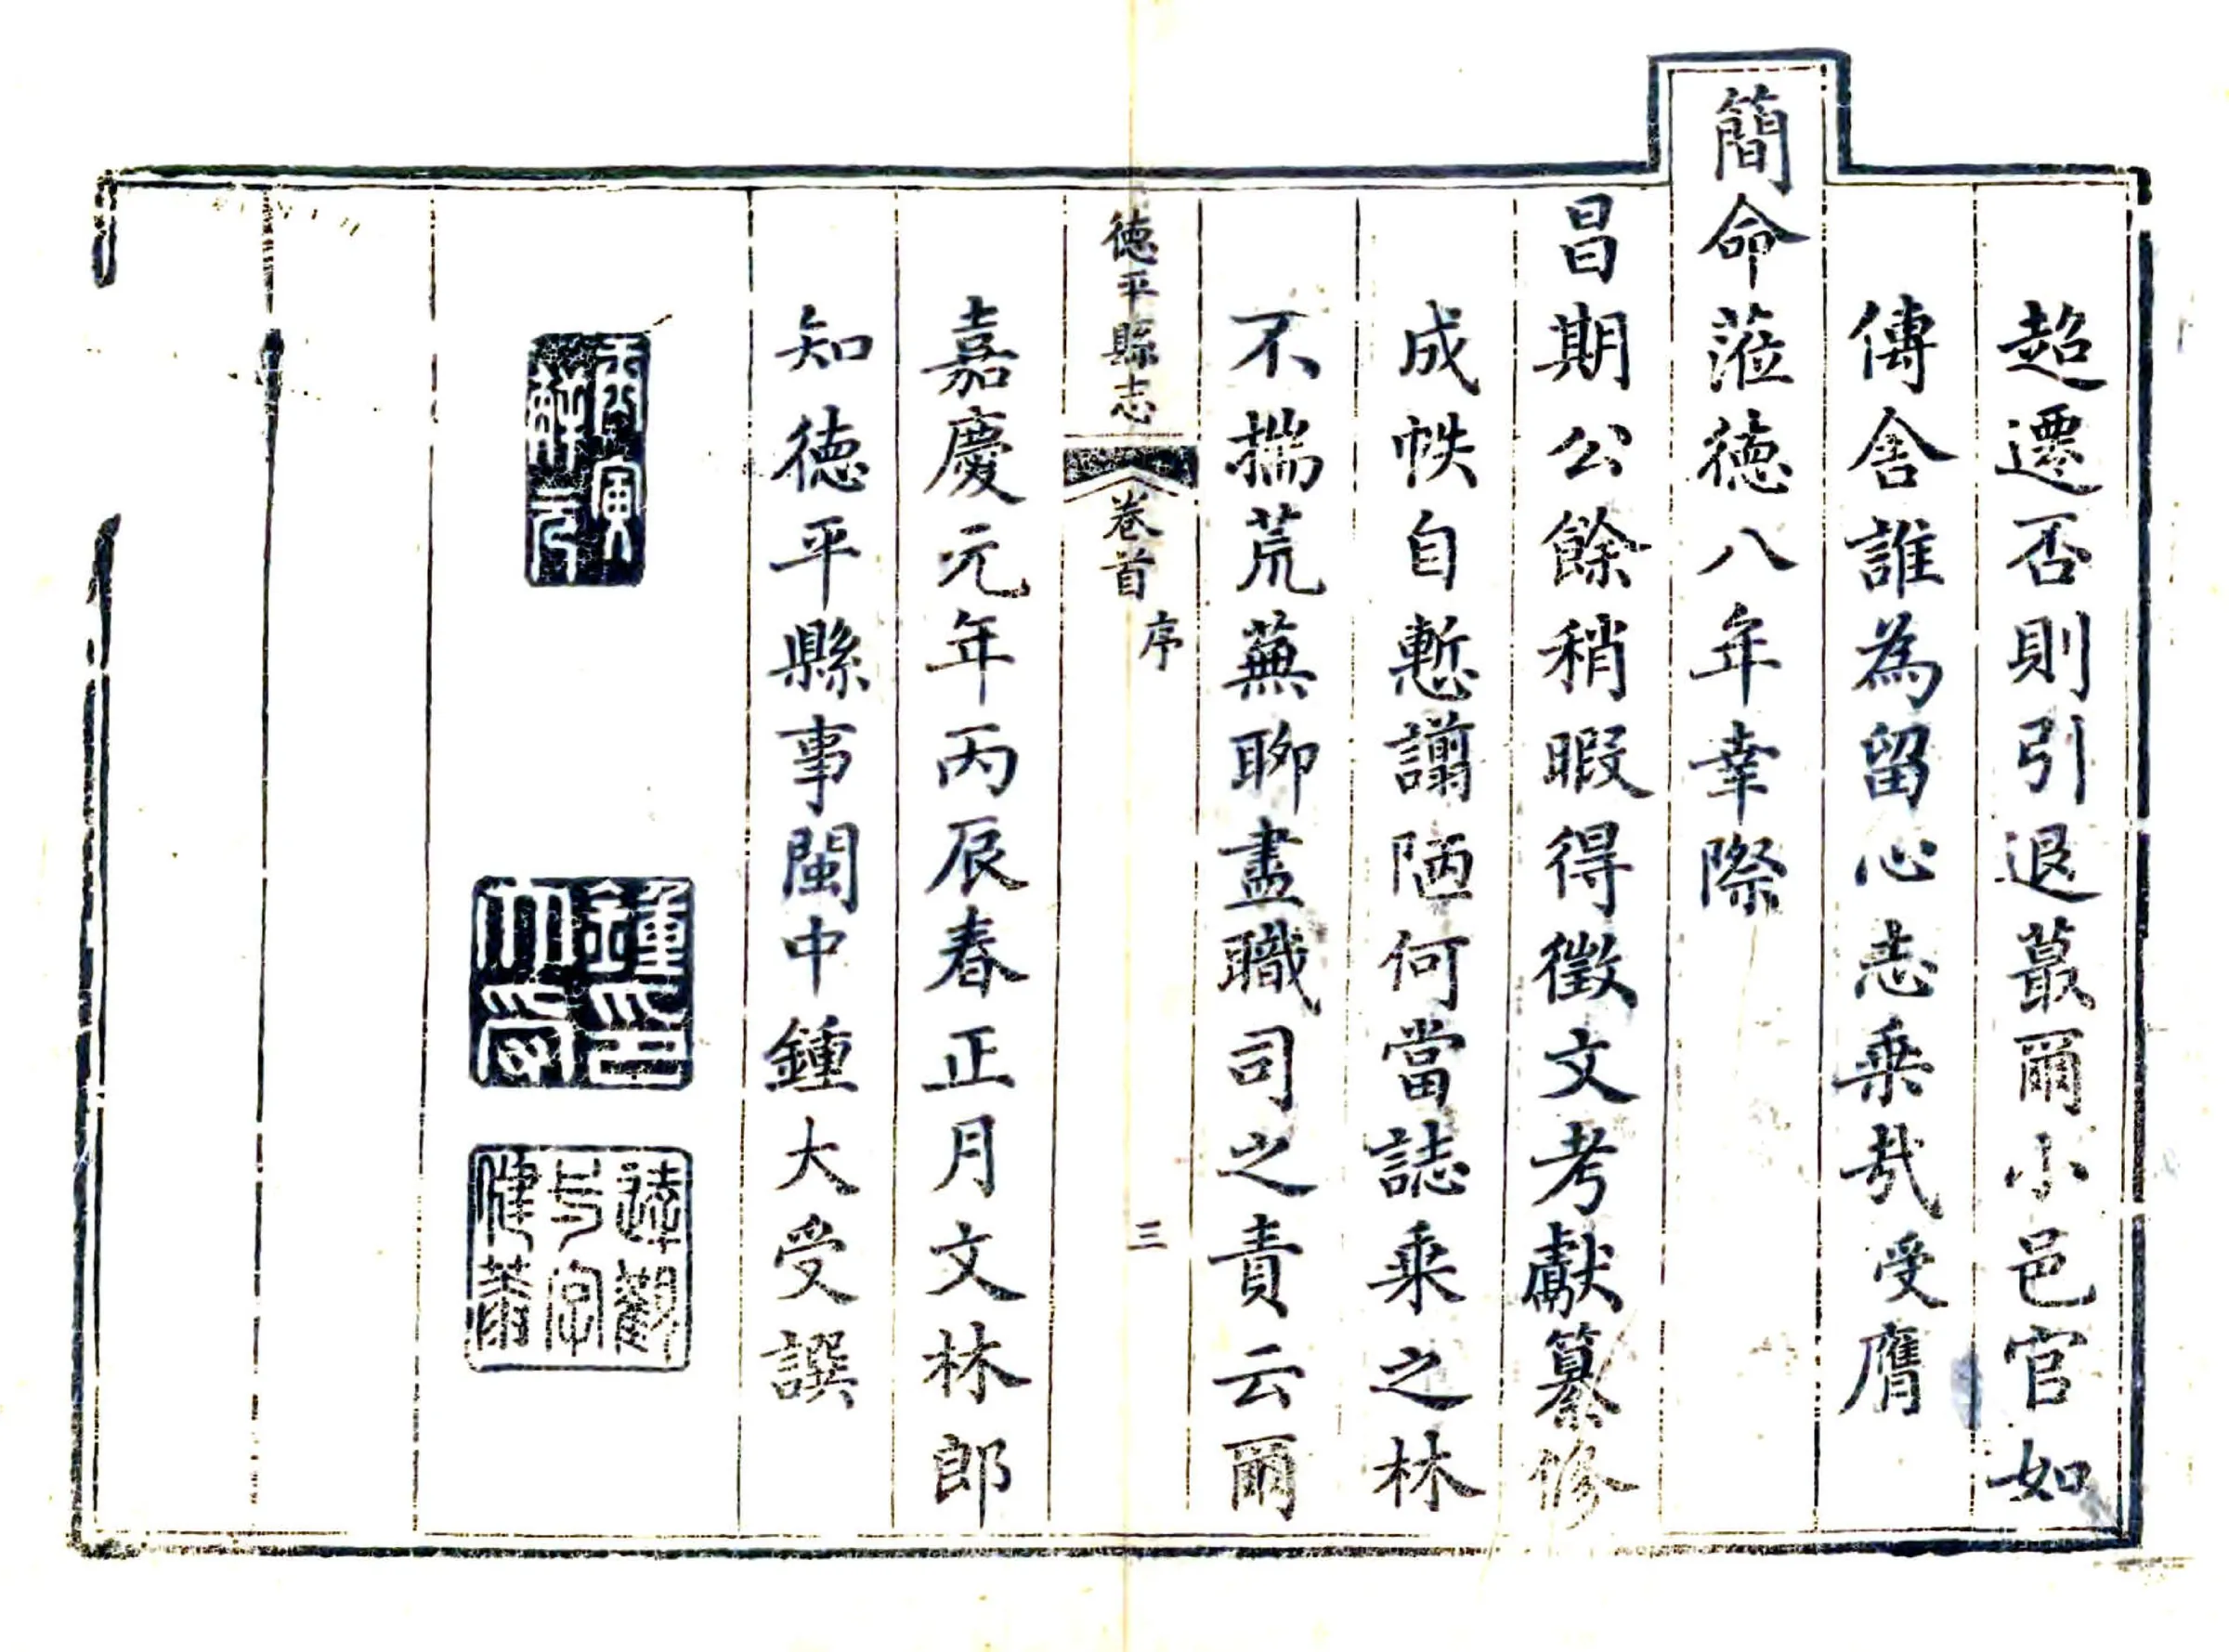 超遷否則引退蕞爾小邑官如
傳舍誰為留心志乗哉受膺
簡命蒞徳八年幸際
昌期公餘稍暇得徵文考獻纂修
成帙自慙謭陋何當誌乗之林
不揣荒蕪聊盡職司之責云爾
徳平縣志
卷首
序
三
嘉慶元年丙辰春正月文林郎
知徳平縣事閩中鍾大受譔
鍾印
大受